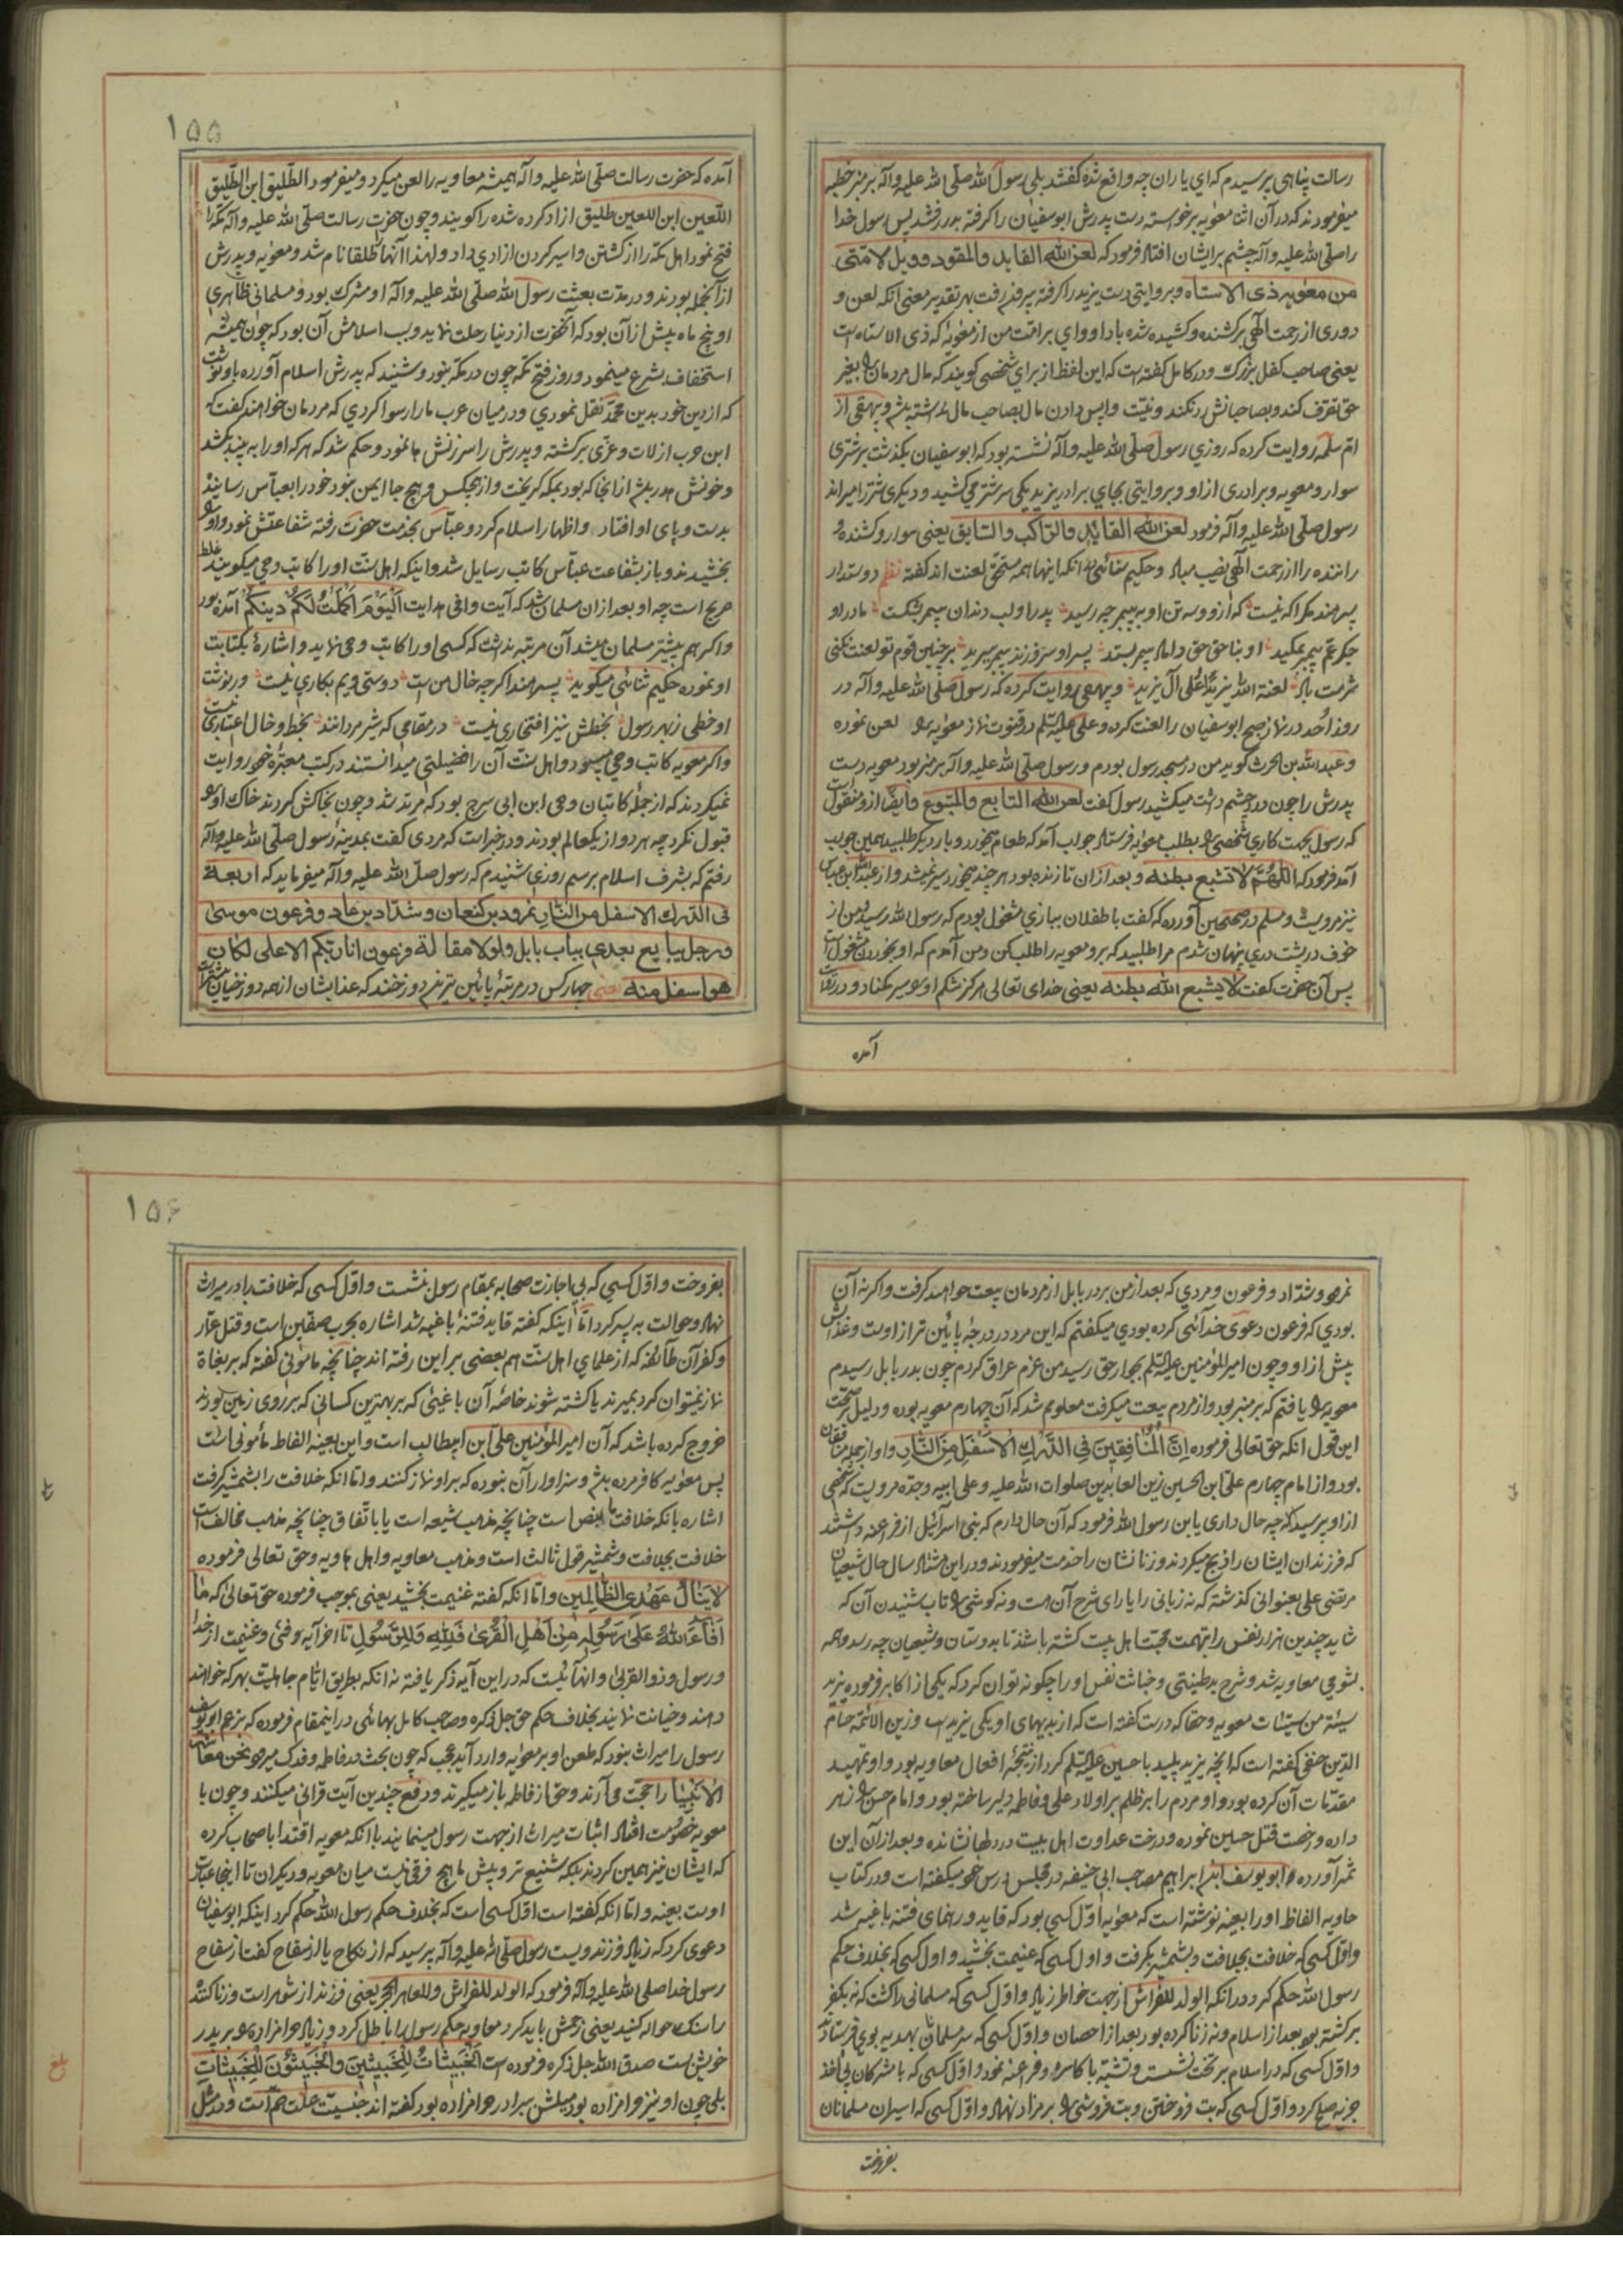 رسالت پناهی پرسیدم که ای یاران چه واقع شده گفتند بلی رسول الله صلی الله علیه وآله بر منبر خطبه
میفرمودند که در آن اثنا معویه برخواسته دست پدرش ابوسفیان را گرفته بدر رفتند پس رسول خدا
را صلی الله علیه وآله چشم بر ایشان افتاد فرمود که لعن الله القاید والمقود و ویل لامتی
من معویه ذی الاستاه و بروایتی دست یزید را گرفته بیرون رفت بهر تقدیر معنی آنکه لعن و
دوری از رحمت الهی بر کشنده و کشیده شده باد او وای بر امت من از معویه که ذی الاستاه است
یعنی صاحب کفل بزرک و در کامل گفته است که این لفظ از برای شخصی گویند که مال مردمان را بغیر
حق تصرف کند و بصاحبانش رد نکند و نیت واپس دادن مال بصاحب مال نداشته باشد و بیهقی از
ام سلمه روایت کرده که روزی رسول صلی الله علیه وآله نشسته بود که ابوسفیان بگذشت بر شتری
سوار و معویه و برادری از او و بروایتی بجای برادر یزید یکی سر شتر می کشید و دیکری شتر را میراند
رسول صلی الله علیه وآله فرمود لعن الله القاید والراکب والسایق یعنی سوار و کشنده و
راننده را از رحمت الهی نصیب مباد و حکیم سنائی را آنکه اینها همه مستحق لعنت اند گفته نظم دوستدار
پسر هند مکر آکه نیست که از و و سه تن او به پیمبر چه رسید پدر او لب دندان پیمبر بشکست مادر او
جکر عم پیمبر بمکید او بناحق حق داماد پیمبر بستد پسر او سر فرزند پیمبر ببرید بر چنین قوم تو لعنت نکنی
شرمت باد لعنة الله یزیدًا علی آل یزید و بیهقی روایت کرده که رسول صلی الله علیه وآله در
روز اُحد در نماز صبح ابوسفیان را لعنت کرده و علی علیه السلم در قنوت نماز معویه را لعن نموده
و عبدالله بن الحرث گوید من در مسجد رسول بودم و رسول صلی الله علیه وآله بر منبر بود معویه دست
پدرش را چون درد چشم داشت میکشید رسول گفت لعن الله التابع والمتبوع و ایضًا از و منقول است
که رسول بجهت کاری شخصی را بطلب معویه فرستاد جواب آمد که طعام میخورد و بار دیکر طلبید همین جواب
آمد فرمود که اللهم لا تشبع بطنه و بعد از آن تا زنده بود هر چند میخورد سیر نمیشد و از عبدالله ابن عباس
نیز مرویست و مسلم در صحیحین آورده که گفت با طفلان ببازی مشغول بودم که رسول الله رسید و من از
خوف در پشت دری پنهان شدم مرا طلبید که برو معویه را طلب کن و من آمدم که او بخوردن مشغول است
پس آن حضرت گفت لا یشبع الله بطنه یعنی خدای تعالی هرکز شکم او را سیر مکناد و در روایت
آمده
۱۵۵
آمده که حضرت رسالت صلی الله علیه وآله همیشه معاویه را لعن میکرد و میفرمود الطلیق ابن الطلیق
اللعین ابن اللعین طلیق ازاد کرده شده را کویند و چون حضرت رسالت صلی الله علیه وآله مکه را
فتح نمود اهل مکه را از کشتن و اسیر کردن ازادی داد و لهذا آنها را طلقا نام شد و معویه و پدرش
از آنجمله بودند و در مدت بعثت رسول الله صلی الله علیه وآله او مشرک بود و مسلمانی ظاهری
او پنج ماه پیش از آن بود که آنحضرت از دنیا رحلت نماید و سبب اسلامش آن بود که چون همیشه
استخفاف بشرع مینمود و روز فتح مکه چون در مکه نبود و شنید که پدرش اسلام آورده باو نوشت
که از دین خود بدین محمد نقل نمودی و در میان عرب ما را رسوا کردی که مردمان خواهند گفت که
ابن حرب از لات و عزی برکشته و پدرش را سرزنش ها نمود و حکم شد که هر که او را به بیند بکشد
و خونش هدر باشد از انجا که بود بمکه کریخت و از هیچکس و هیچ جا ایمن نبود خود را بعباس رسانید
بدست و پای او افتاد و اظهار اسلام کرد و عباس بخدمت حضرت رفته شفاعتش نمود و او را
بخشیدند و باز بشفاعت عباس کاتب رسایل شد و اینکه اهل سنت او را کاتب وحی میکویند غلط
صریح است چه او بعد از ان مسلمان شد که آیت وافی هدایت الیوم اکملت لکم دینکم آمده بود
و اکر هم پیشتر مسلمان میشد آن مرتبه نداشت که کسی او را کاتب وحی نماید و اشاره بکتابت
او نموده حکیم سنائی میکوید پسر هند اکر چه خال من است دوستی ویم بکاری نیست ور نوشت
او خطی ز بهر رسول بخطش نیز افتخاری نیست در مقامی که شیر مردانند بخط و خال اعتباری نیست
و اکر معویه کاتب وحی میبود و اهل سنت آن را فضیلتی میدانستند در کتب معتبره خود روایت
نمیکردند که از جمله کاتبان وحی ابن ابی سرح بود که مرتد شد و چون بخاکش کردند خاک او را
قبول نکرد چه هر دو از یکعالم بودند و در خبر است که مردی گفت بمدینه رسول صلی الله علیه وآله
رفتم که بشرف اسلام برسم روزی شنیدم که رسول صلی الله علیه وآله میفرماید که اربعة
فی الدرک الاسفل من النار نمرود بن کنعان و شداد بن عاد و فرعون موسی
و رجل یبایع بعدی بباب بابل ولولا مقالة فرعون انا ربکم الاعلی لکان
هو اسفل منه یعنی چهار کس در مرتبهٔ پائین ترند در دوزخند که عذابشان از همه دوزخیان بیشتر است
نمرود و شداد و فرعون و مردی که بعد از من بر در بابل از مردمان بیعت خواهد گرفت و اکر نه آن
بودی که فرعون دعوی خدائی کرده بودی میکفتم که این مرد در درجهٔ پائین تر از اوست و عذابش
بیش از او و چون امیرالمؤمنین علیه السلم بجوار حق رسید من عزم عراق کردم چون بدر بابل رسیدم
معویه را یافتم که بر منبر بود و از مردم بیعت میکرفت معلوم شد که آن چهارم معویه بوده و دلیل بر صحت
این قول آنکه حق تعالی فرموده ان المنافقین فی الدرک الاسفل من النار و او از جمله منافقان
بود و از امام چهارم علی ابن الحسین زین العابدین صلوات الله علیه و علی ابیه و جده مرویست که شخصی
از او پرسید که چه حال داری یابن رسول الله فرمود که آن حال دارم که بنی اسرآئیل از فراعنه داشتند
که فرزندان ایشان را ذبح میکردند و زنانشان را خدمت میفرمودند و در این هشتاد سال حال شیعیان
مرتضی علی بعنوانی گذشته که نه زبانی را یارای شرح آن هست و نه کوشی را تاب شنیدن آن که
شاید چندین هزار نفس را بتهمت محبت اهل بیت کشته باشند تا بدوستان و شیعیان چه رسد و همه
بشومی معاویه شد و شرح بدطینتی و خباثت نفس او را چکونه توان کرد که یکی از اکابر فرموده یزید
سیئة من سیئات معویه و حقا که درست گفته است که از بدیهای او یکی یزید است و زین الائمه حسام
الدین حنفی کفته است که آنچه یزید پلید با حسین علیه السلم کرد از نتیجهٔ افعال معاویه بود و او تمهید
مقدمات آن کرده بود و او مردم را بر ظلم بر اولاد علی و فاطمه دلیر ساخته بود و امام حسن را زهر
داده و رخصت قتل حسین نموده و درخت عداوت اهل بیت در دلها نشانده و بعد از آن این
ثمر آورده و ابو یوسف ابن ابراهیم مصاحب ابی حنیفه در مجلس درس خود میکفته است و در کتاب
حاویه الفاظ او را بعینه نوشته است که معویه اول کسی بود که قاید و رهنمای فتنه باغیه شد
و اول کسی که خلافت بجلافت و بشمشیر بکرفت و اول کسی که غنیمت بخشید و اول کسی که بخلاف حکم
رسول الله حکم کرد در آنکه الولد للفراش از جهت خاطر زیاد و اول کسی که مسلمانی را کشت که نه بکفر
برکشته بود بعد از اسلام و نه زنا کرده بود بعد از احصان و اول کسی که سر مسلمانان بهدیه بوی فرستادند
و اول کسی که در اسلام بر تخت نشست و تشبه با کاسره و فراعنه نمود و اول کسی که با مشرکان بی اخذ
جزیه صلح کرد و اول کسی که بت فروختن و بت فروشی را بر مزاد نهاد و اول کسی که اسیران مسلمانان
بفروخت
۱۵۶
بفروخت و اول کسی که بی اجازت صحابه بمقام رسول بنشست و اول کسی که خلافت را در میراث
نهاد و حوالت به پسر کرد اما اینکه گفته قاید فتنهٔ باغیه شد اشاره بحرب صفین است و قتل عمار
و کفر آن طائفه که از علمای اهل سنت هم بعضی بر این رفته اند چنانچه مامونی گفته که بر بغاة
نماز نمیتوان کرد بمیرند یا کشته شوند خاصه آن باغیئی که بر بهترین کسانی که بر روی زمین بودند
خروج کرده باشد که آن امیرالمؤمنین علی ابن ابیطالب است و این بعینه الفاظ مأمونی است
پس معویه کافر مرده باشد و سزاوار آن نبوده که بر او نماز کنند و اما آنکه خلافت را بشمشیر گرفت
اشاره بانکه خلافت یا بنص است چنانچه مذهب شیعه است یا باتفاق چنانچه مذهب مخالف است
خلافت بجلافت و شمشیر قول ثالث است و مذهب معاویه و اهل هاویه و حق تعالی فرموده
لا ینال عهدی الظالمین و اما آنکه گفته غنیمت بخشید یعنی بموجب فرموده حق تعالی که ما
افآء الله علی رسوله من اهل القری فلله وللرسول تا اخر آیه و فئ و غنیمت از خدا
و رسول و ذوالقربی و انهائیست که در این آیه ذکر یافته نه آنکه بطریق ایام جاهلیت بهر که خواهند
دهند و خیانت نمایند بخلاف حکم حق جل ذکره و صاحب کامل بهائی در اینمقام فرموده که بزعم ابو یوسف
رسول را میراث بود که طعن او بر معویه وارد آید عجب که چون بحث در فاطمه و فدک میرود نحن معاشر
الانبیا را حجت می آرند و حق از فاطمه باز میکیرند و رفع چندین آیت قرانی میکنند و چون با
معویه خصومت افتاد اثبات میراث از جهت رسول مینمایند با آنکه معویه اقتدا باصحاب کرده
که ایشان نیز همین کردند بلکه شنیع تر و پیش ما هیچ فرقی نیست میان معویه و دیکران تا اینجا عبارت
اوست بعینه و اما آنکه گفته است اول کسی است که بخلاف حکم رسول الله حکم کرد اینکه ابوسفیان
دعوی کرد که زیاد فرزند ویست رسول صلی الله علیه وآله پرسید که از نکاح یا از سفاح گفت از سفاح
رسول خدا صلی الله علیه وآله فرمود که الولد للفراش وللعاهر الحجر یعنی فرزند از شوهر است و زنا کننده
را سنک حواله کنید یعنی رجمش باید کرد معاویه حکم رسول را باطل کرد و زیاد حرامزاده را برادر
خویش است صدق الله جل ذکره فرموده است الخبیثات للخبیثین والخبیثون للخبیثات
بلی چون او نیز حرامزاده بود میلش ببرادر حرامزاده بود گفته اند جنسیت علت ضم است و در مثل
بلغ